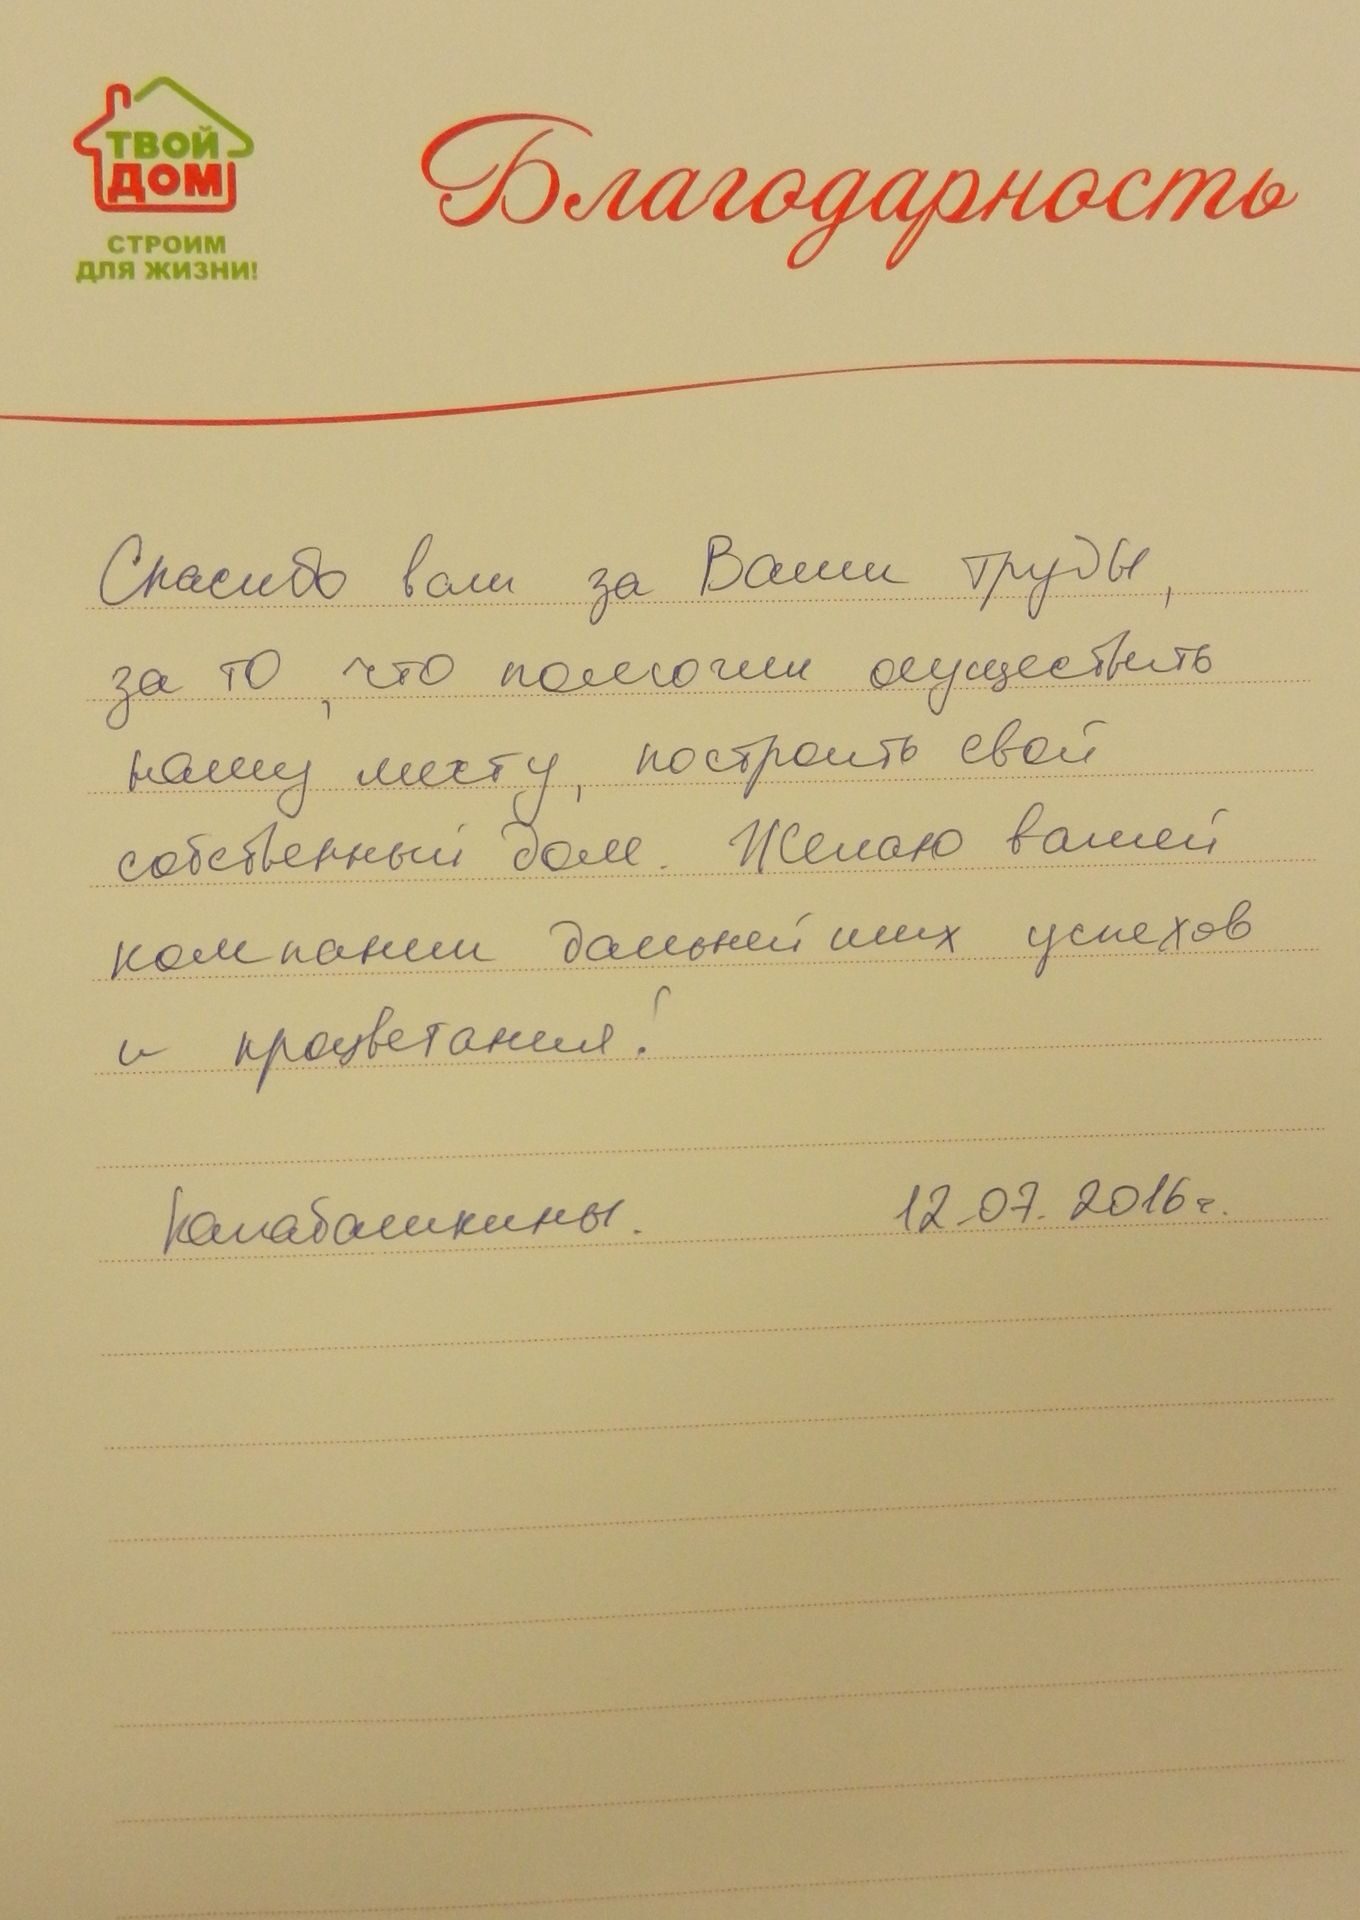 ТВОЙ
ДОМ
СТРОИМ
ДЛЯ ЖИЗНИ!
Благодарность
Спасибо вам за Ваши труды,
за то, что помогли осуществить
нашу мечту, построить свой
собственный дом. Желаю вашей
компании дальнейших успехов
и процветания!
Калабашкины. 12.07.2016г.